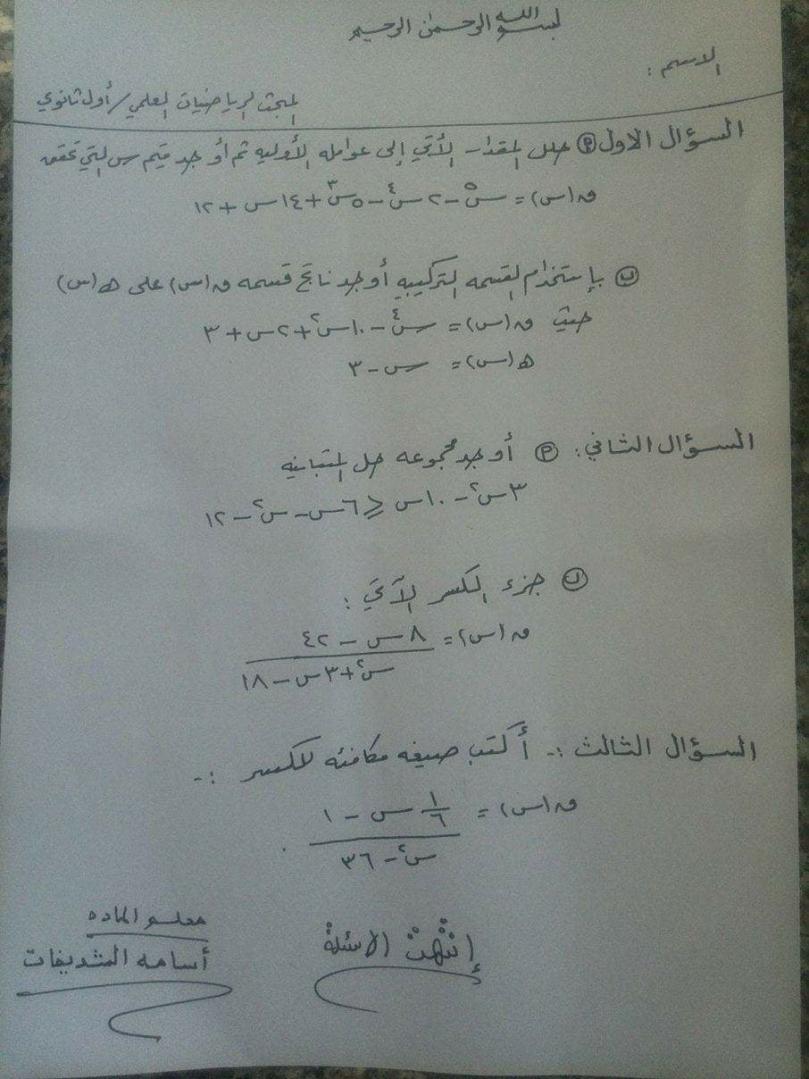 بسم الله الرحمن الرحيم
الاسم :
المبحث الرياضيات العلمي/أول ثانوي
السؤال الاول Ⓟ حلل المقدار الأتي إلى عوامله الأوليه ثم أوجد قيم س التي تحقق
ق(س) = س⁵ - ٢س⁴ - ٥س³ + ١٤س + ١٢
ⓑ بإستخدام القسمه التركيبيه أوجد ناتج قسمه ق(س) على ه(س)
حيث ق(س) = س⁴ - ١٠س² + ٢س + ٣
ه(س) = س - ٣
السؤال الثاني : Ⓟ أوجد مجموعه حل المتباينه
٣س² - ١٠س ≥ ٦س - س² - ١٢
ⓑ جزء الكسر الآتي :
ق(س) = ٨س - ٤٢
س² + ٣س - ١٨
السؤال الثالث :- أكتب صيغه مكافئه للكسر :-
ق(س) = ١/٦ س - ١
س² - ٣٦
إنتهت الاسئلة
معلم الماده
أسامه المشديفات